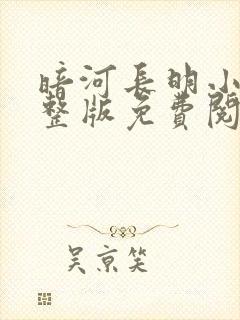 暗河长明小
整版免费阅
吴京笑